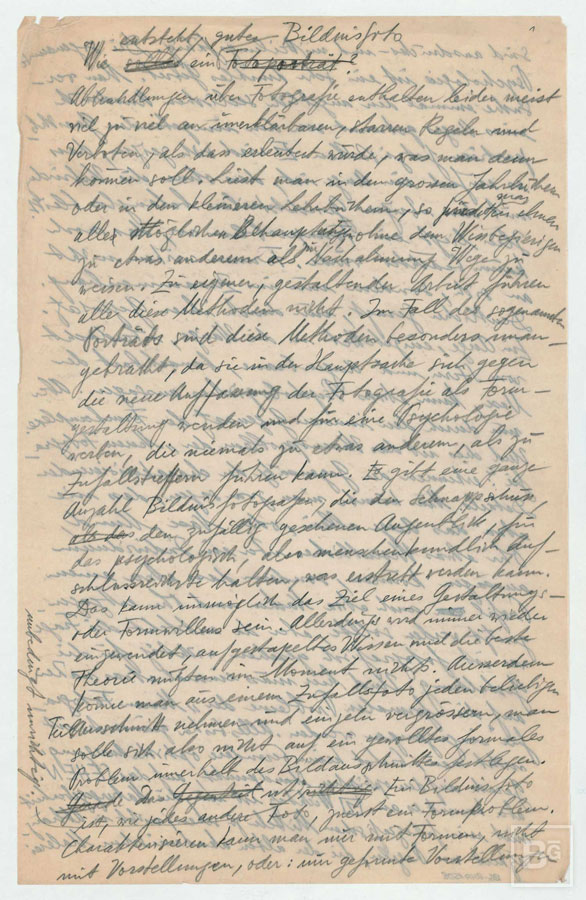 entsteht gutes Bildnisfoto
Wie ein Fotoporträt?
Abhandlungen über Fotografie enthalten leider meist
viel zu viel an unerklärbaren, starren Regeln und
Verboten, als dass erläutert würde, was man denn
können soll. Liest man in den grossen Jahrbüchern
oder in den kleineren Lehrbüchern, so
aller möglichen ohne dem Wissbegierigen
zu etwas anderem als Nachahmung Wege zu
weisen. Zu eigener, gestaltender Arbeit führen
alle diese Methoden nicht. Im Fall des sogenannten
Porträts sind diese Methoden besonders unan-
gebracht, da sie in der Hauptsache sich gegen
die neue Auffassung der Fotografie als Form-
gestaltung wenden und für eine Psychologie
werben, die niemals zu etwas anderem, als zu
Zufallstreffern führen kann. Es gibt eine ganze
Anzahl Bildnisfotografen, die den Schnappschuss,
als das den zufällig gesehenen Augenblick, für
das psychologisch, also menschenkundlich Auf-
schlussreichste halten, was erstrebt werden kann.
Das kann unmöglich das Ziel eines Gestaltungs-
oder Formwillens sein. Allerdings wird immer wieder
eingewendet, aufgestapeltes Wissen und die beste
Theorie nützten im Moment nichts. Ausserdem
könne man aus einem Zufallsfoto jeden beliebigen
Teilausschnitt nehmen und einzeln vergrössern, man
solle sich also nicht auf ein gewolltes formales
Problem innerhalb des Bildausschnittes festlegen.
das Gegenteil ist richtig. Ein Bildnisfoto
ist, wie jedes andere Foto, zuerst ein Formproblem.
Charakterisieren kann man nur mit Formen, nicht
mit Vorstellungen, oder: nur geformte Vorstellungen
unbedingt unrichtig!
BG